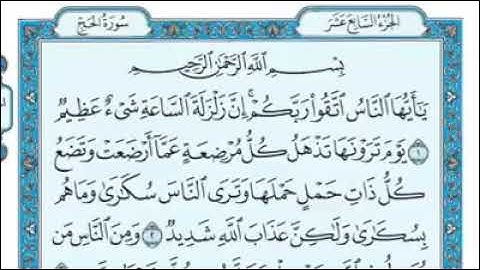 سُورَةُ الحَجِّ الجُزْءُ السَّابِعَ عَشَرَ
بِسْمِ اللَّهِ الرَّحْمَٰنِ الرَّحِيمِ
يَٰٓأَيُّهَا النَّاسُ اتَّقُوا۟ رَبَّكُمْ ۚ إِنَّ زَلْزَلَةَ السَّاعَةِ شَىْءٌ عَظِيمٌ
١ يَوْمَ تَرَوْنَهَا تَذْهَلُ كُلُّ مُرْضِعَةٍ عَمَّآ أَرْضَعَتْ وَتَضَعُ
كُلُّ ذَاتِ حَمْلٍ حَمْلَهَا وَتَرَى النَّاسَ سُكَٰرَىٰ وَمَا هُم
بِسُكَٰرَىٰ وَلَٰكِنَّ عَذَابَ اللَّهِ شَدِيدٌ ٢ وَمِنَ النَّاسِ مَن